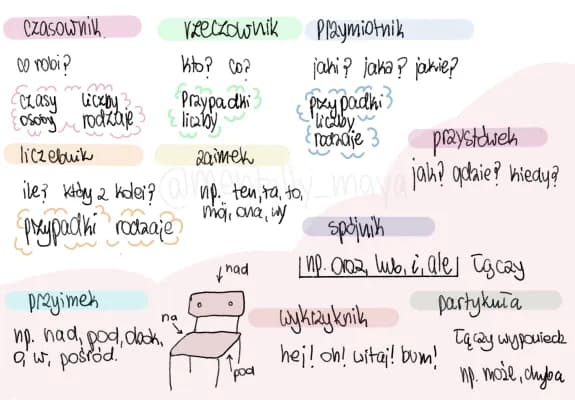 czasownik
co robi?
czasy liczby
osoby rodzaje
rzeczownik
kto? co?
przypadki
liczby
przymiotnik
jaki? jaka? jakie?
przypadki
liczby
rodzaje
liczebnik
ile? który z kolei?
przypadki rodzaje
zaimek
np. ten, ta, to,
mój, ona, wy
przysłówek
jak? gdzie? kiedy?
spójnik
np. oraz, lub, i, ale łączy
przyimek
np. nad, pod, obok,
o, w, pośród.
nad
na
pod
wykrzyknik
hej! oh! witaj! bum!
partykuła
łączy wypowiedź
np. może, chyba